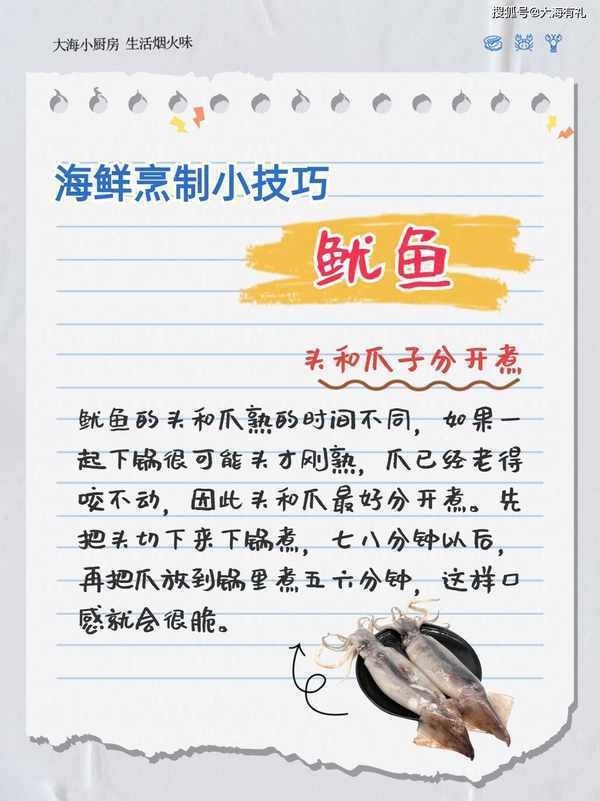 搜狐号@大海有礼
大海小厨房 生活烟火味
海鲜烹制小技巧
鱿鱼
头和爪子分开煮
鱿鱼的头和爪熟的时间不同，如果一
起下锅很可能头才刚熟，爪已经老得
咬不动，因此头和爪最好分开煮。先
把头切下来下锅煮，七八分钟以后，
再把爪放到锅里煮五六分钟，这样口
感就会很脆。